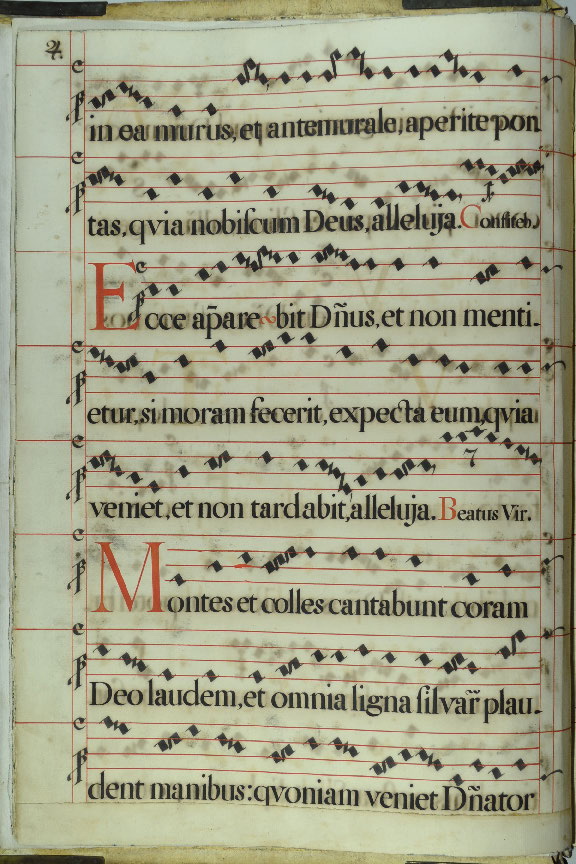 24.
in ea murus, et antemurale, aperite por¬
tas, qvia nobiſcum Deus, alleluja. 1. Confiteb.
Ecce ap̄arebit Dñus, et non menti¬
etur, si moram fecerit, expecta eum, qvia
veniet, et non tardabit, alleluja. 7 Beatus Vir.
Montes et colles cantabunt coram
Deo laudem, et omnia ligna ſilvar̃ plau¬
dent manibus: qvoniam veniet Dñator